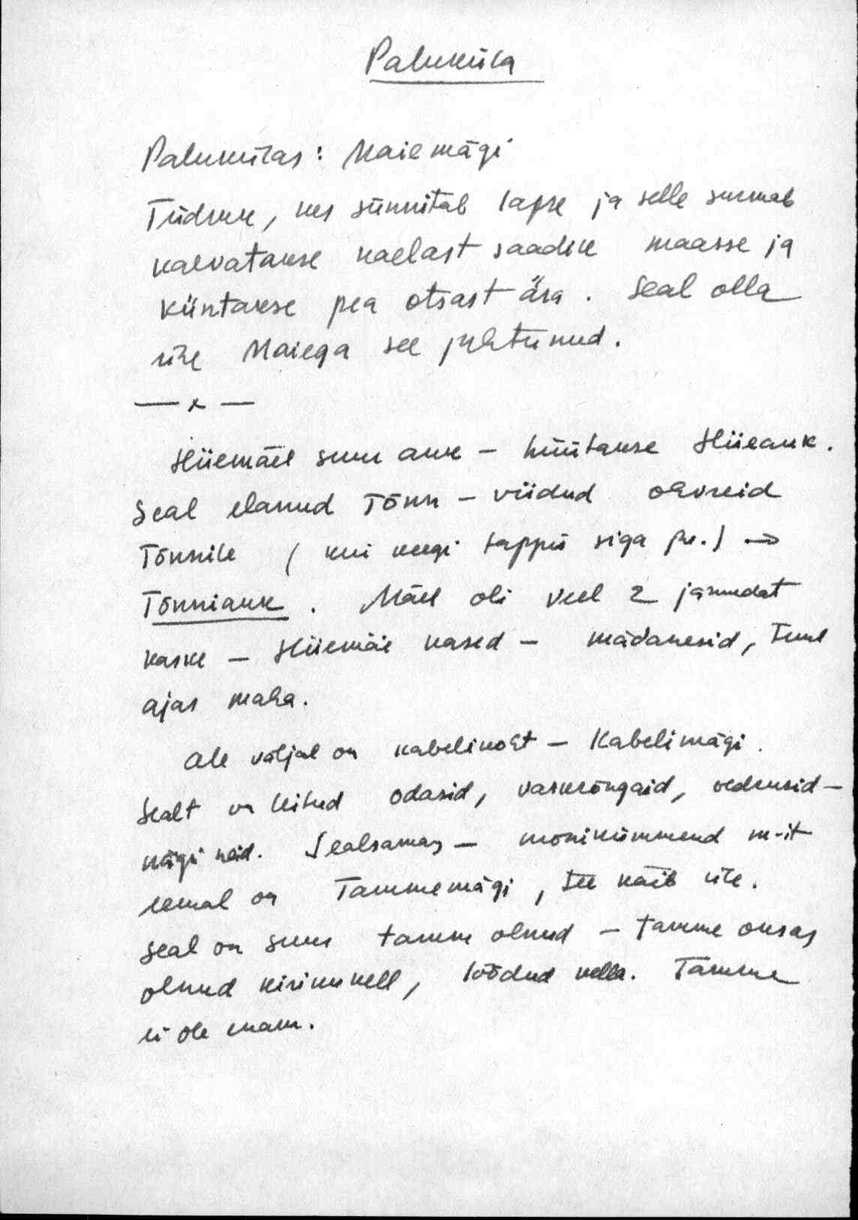 Paluküla
Palukülas: Maiemägi
Tüdruk, kes sünnitab lapse ja selle surmab
kaevatakse kaelast saadik maasse ja
küntakse pea otsast ära. Seal olla
ühe Maiega see juhtunud.
— x —
Hiiemäel suur auk – hüütakse Hiieauk.
Seal elanud Tõnn – viidud ohvreid
Tõnnile (kui keegi tappis siga jne.) →
Tõnniauk. Mäel oli veel 2 jämedat
kaske – Hiiemäe kased – mädanesid, tuul
ajas maha.
Ale väljal on kabelikoht – Kabelimägi.
Sealt on leitud odasid, vaskrõngaid,
nägi neid. Sealsamas – monikümmend m-it
eemal on Tammemägi, tee käib üle.
Seal on suur tamm olnud – tamme otsas
olnud kirikukell, löödud kella. Tamme
ei ole enam.